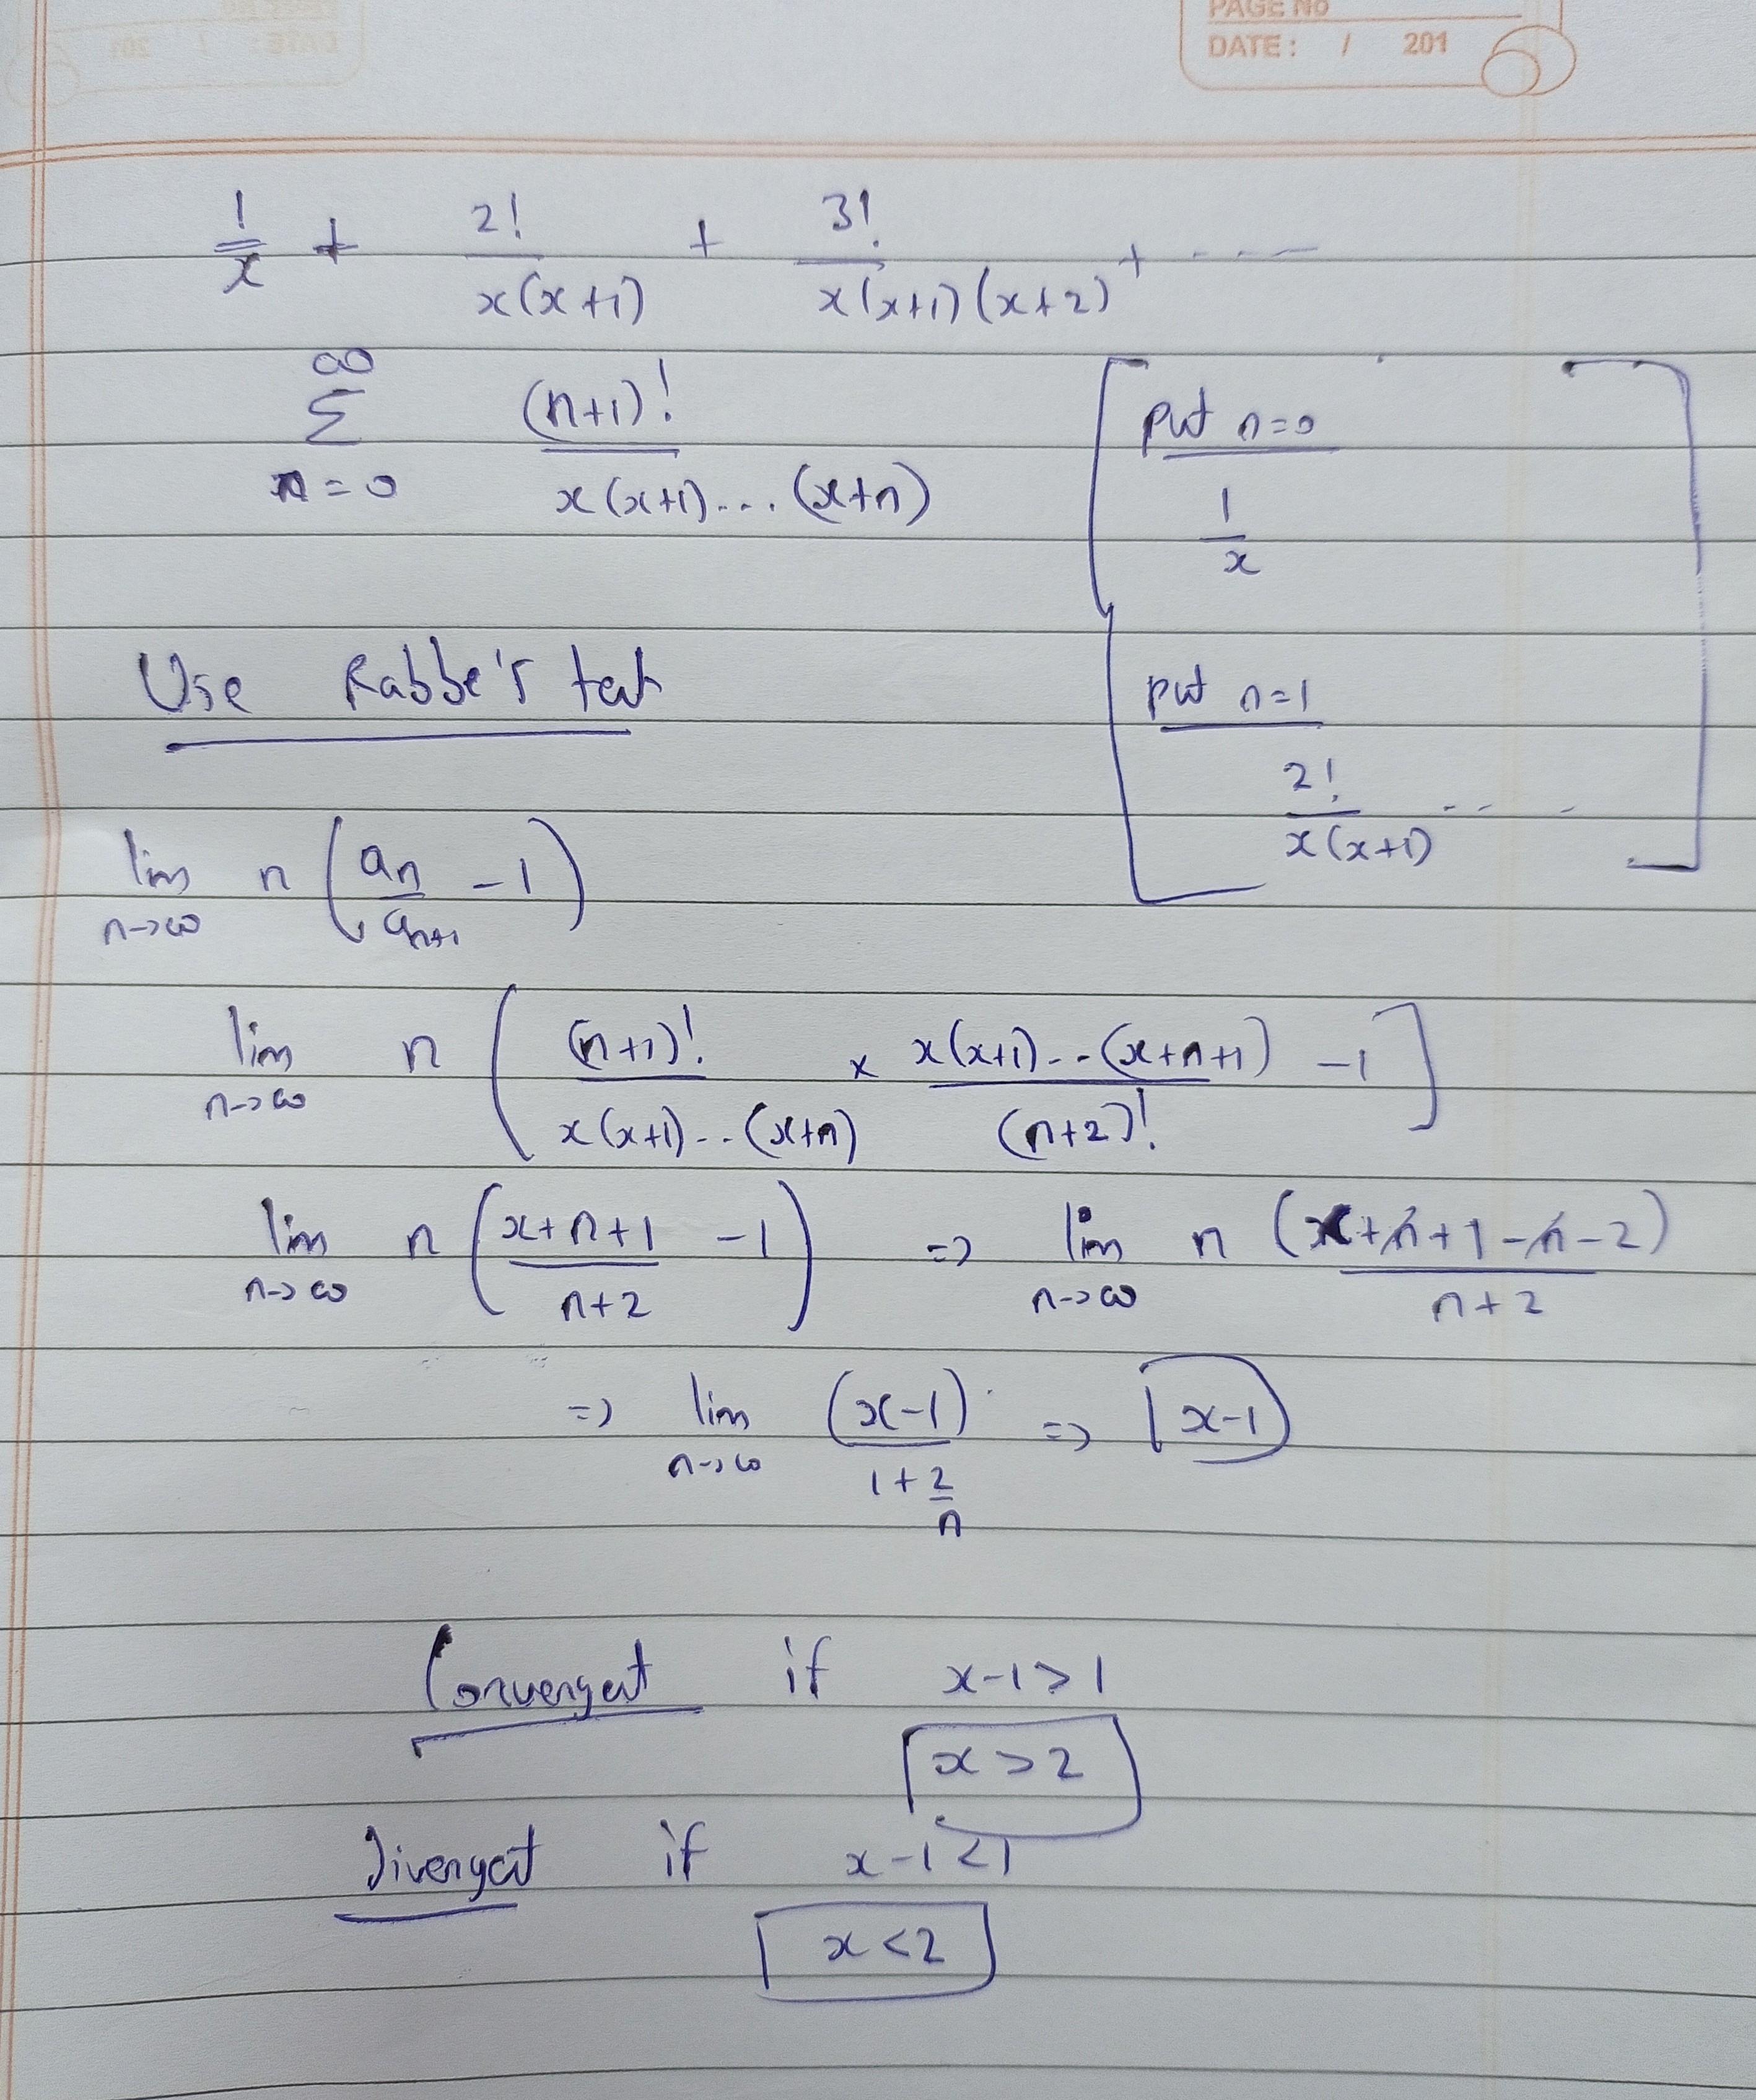 PAGE No
DATE : / 201
1/x + 2!/x(x+1) + 3!/x(x+1)(x+2) + ----
∞ Σ n=0 (n+1)!/x(x+1)....(x+n)
Put n=0
1/x
Use Rabbe's test
put n=1
2!/x(x+1) -----
lim n→∞ n (an/an+1 - 1)
lim n→∞ n [(n+1)!/x(x+1)--(x+n) × x(x+1)--(x+n+1)/(n+2)! - 1]
lim n→∞ n (x+n+1/n+2 - 1) => lim n→∞ n (x+n+1-n-2)/n+2
=> lim n→∞ (x-1)/1+2/n => x-1
Convergent if x-1>1
x>2
Divergent if x-1<1
x<2